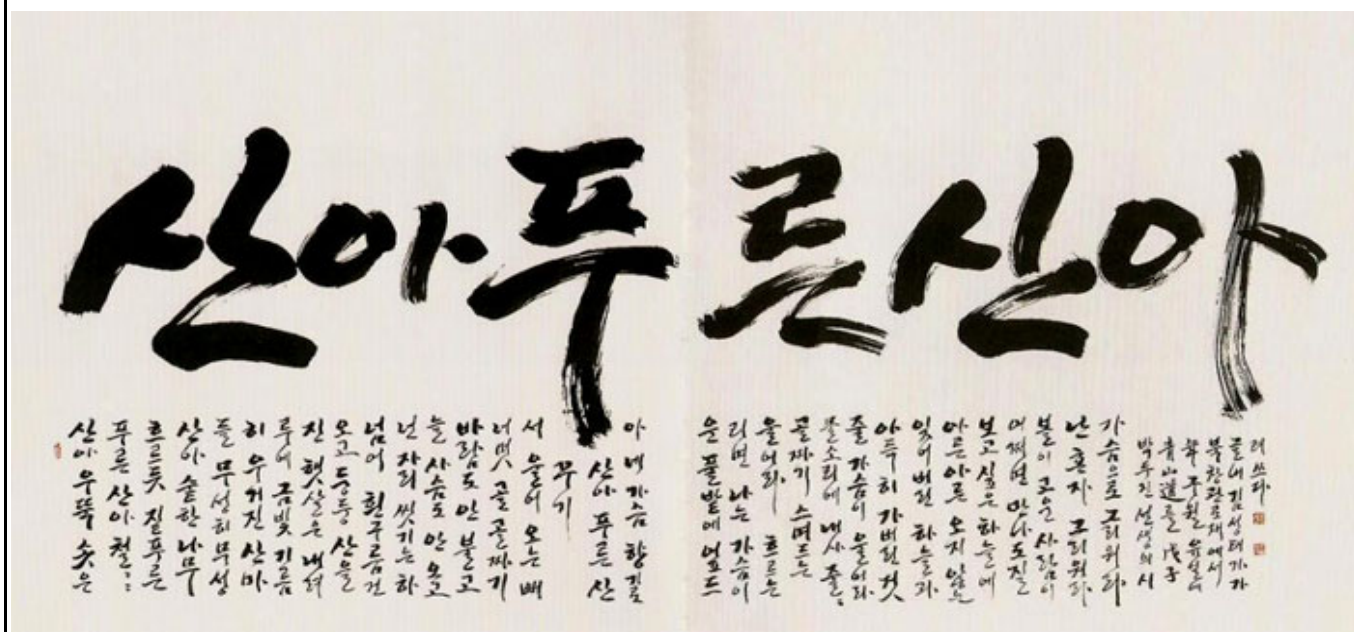 산아푸른산아
산아 우뚝 솟은
푸른 산아 철:
흐르듯 짙푸른
산아 숱한 나무
들 무성히 무성
히 우거진 산마
루에 금빛 기름
진 햇살은 내려
오고 둥둥 산을
넘어 흰구름 건
넌 자리 씻기는 하
늘 사슴도 안 오고
바람도 안 불고
너멋 골 골짜기
서 울어 오는 뻐
꾸기
산아 푸른 산
아 네 가슴
운 풀밭에 엎드
리면 나는 가슴이
울어라 흐르는
골짜기 스며드는
물소리에 내사 줄:
줄 가슴이 울어라
아득히 가버린 것
잊어버린 하늘과
아른아른 오지 않는
보고 싶은 하늘에
어쩌면 만나도 질
볼이 고운 사람이
난 혼자 그리워라
가슴으로 그리워라
박두진 선생의 시
靑山道를 戊子
에서
김성태가
쓰다